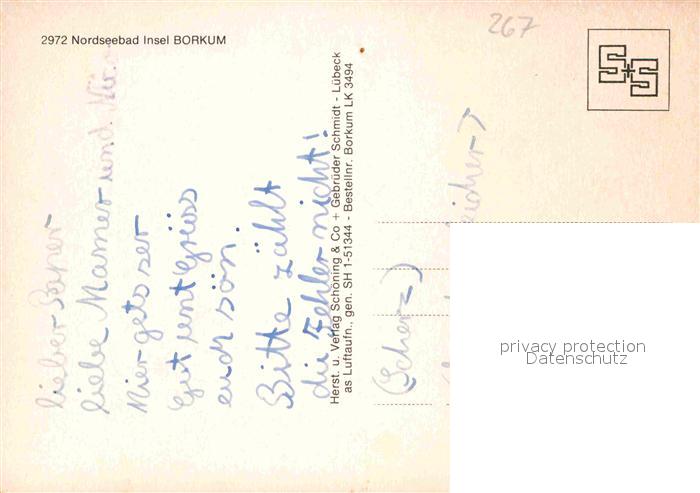 2972 Nordseebad Insel BORKUM
267
S+S
lieber Paper
liebe Mamer und
Mier gets ser
Gut unt Grüss
euch sön.
Bitte zählt
die Fehler nicht!
Herst. u. Verlag Schöning & Co + Gebrüder Schmidt - Lübeck
as Luftaufn., gen. SH 1-51344 - Bestellnr. Borkum LK 3494
(Scherz)
privacy protection
Datenschutz